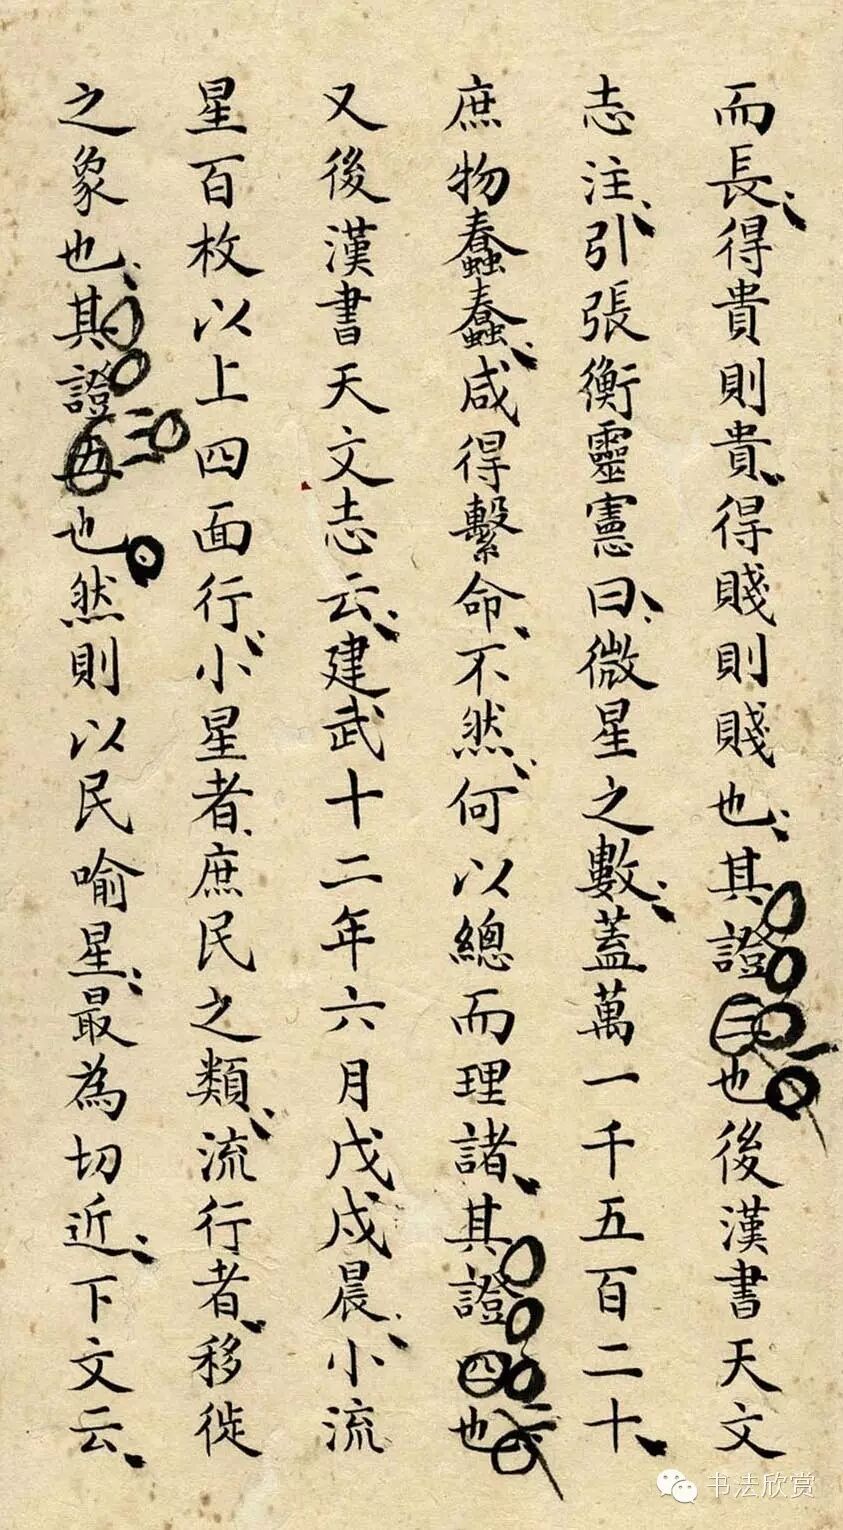 而長得貴則貴得賤則賤也其證三也後漢書天文
志注引張衡靈憲曰微星之數蓋萬一千五百二十
庶物蠢蠢咸得繫命不然何以總而理諸其證四也
又後漢書天文志云建武十二年六月戊戌晨小流
星百枚以上四面行小星者庶民之類流行者移徙
之象也其證五也然則以民喻星最為切近下文云
书法欣赏